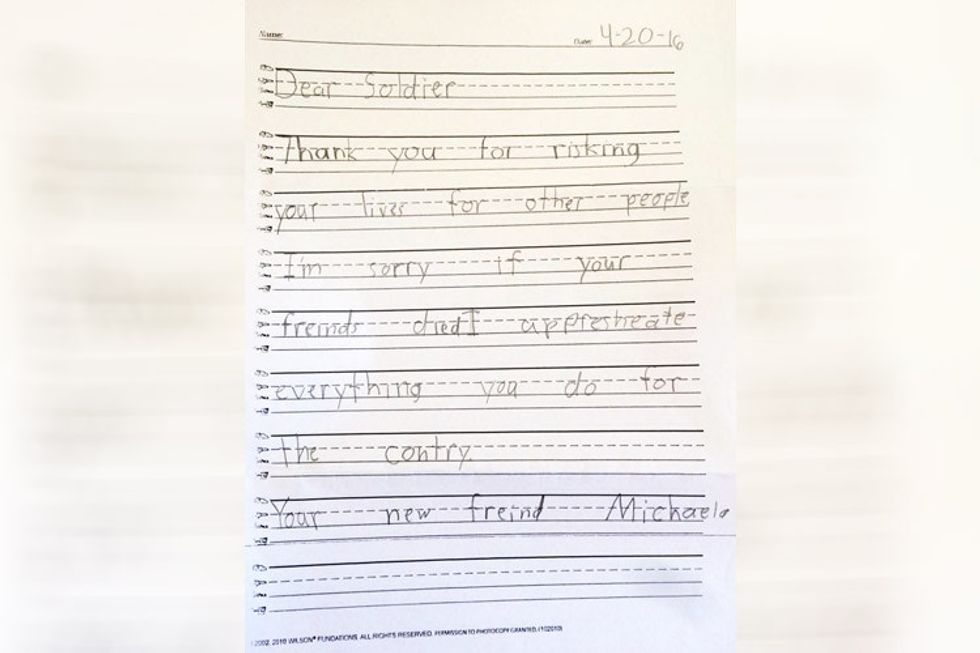 Name:
Date: 4-20-16
Dear Soldier
Thank you for risking
your lives for other people
I'm sorry if your
freinds died I apprestreate
everything you do for
the contry
Your new freind Michaela
2002, 2010 WILSON® FUNDATIONS. ALL RIGHTS RESERVED. PERMISSION TO PHOTOCOPY GRANTED. (102010)